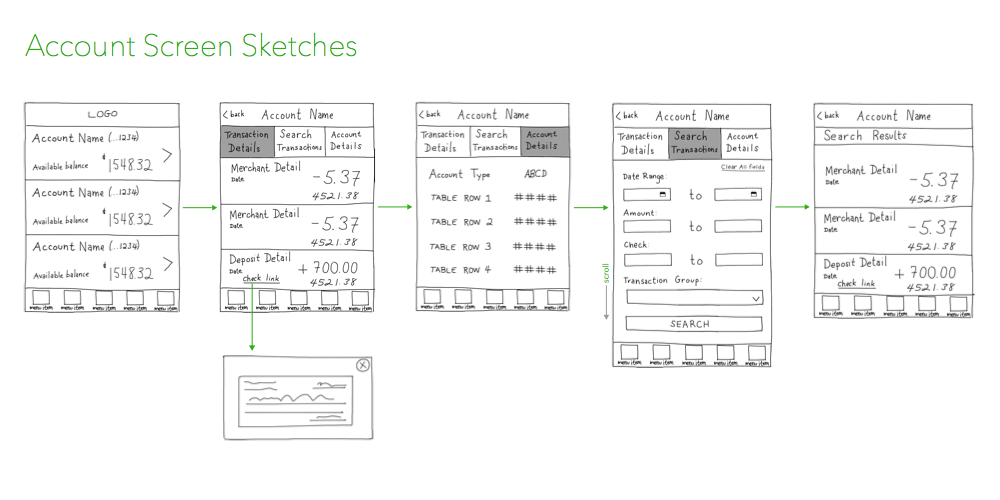 Account Screen Sketches
LOGO
Account Name (...1234)
Available balance $1548.32
Account Name (...1234)
Available balance $1548.32
Account Name (...1234)
Available balance $1548.32
menu item menu item menu item menu item menu item
< back Account Name
Transaction Details
Search Transactions
Account Details
Merchant Detail
Date
-5.37
4521.38
Merchant Detail
Date
-5.37
4521.38
Deposit Detail
Date
check link
+700.00
4521.38
menu item menu item menu item menu item menu item
X
< back Account Name
Transaction Details
Search Transactions
Account Details
Account Type ABCD
TABLE ROW 1 ####
TABLE ROW 2 ####
TABLE ROW 3 ####
TABLE ROW 4 ####
menu item menu item menu item menu item menu item
scroll
< back Account Name
Transaction Details
Search Transactions
Account Details
Clear All fields
Date Range:
to
Amount:
to
Check:
to
Transaction Group:
SEARCH
menu item menu item menu item menu item menu item
< back Account Name
Search Results
Merchant Detail
Date
-5.37
4521.38
Merchant Detail
Date
-5.37
4521.38
Deposit Detail
Date
check link
+700.00
4521.38
menu item menu item menu item menu item menu item